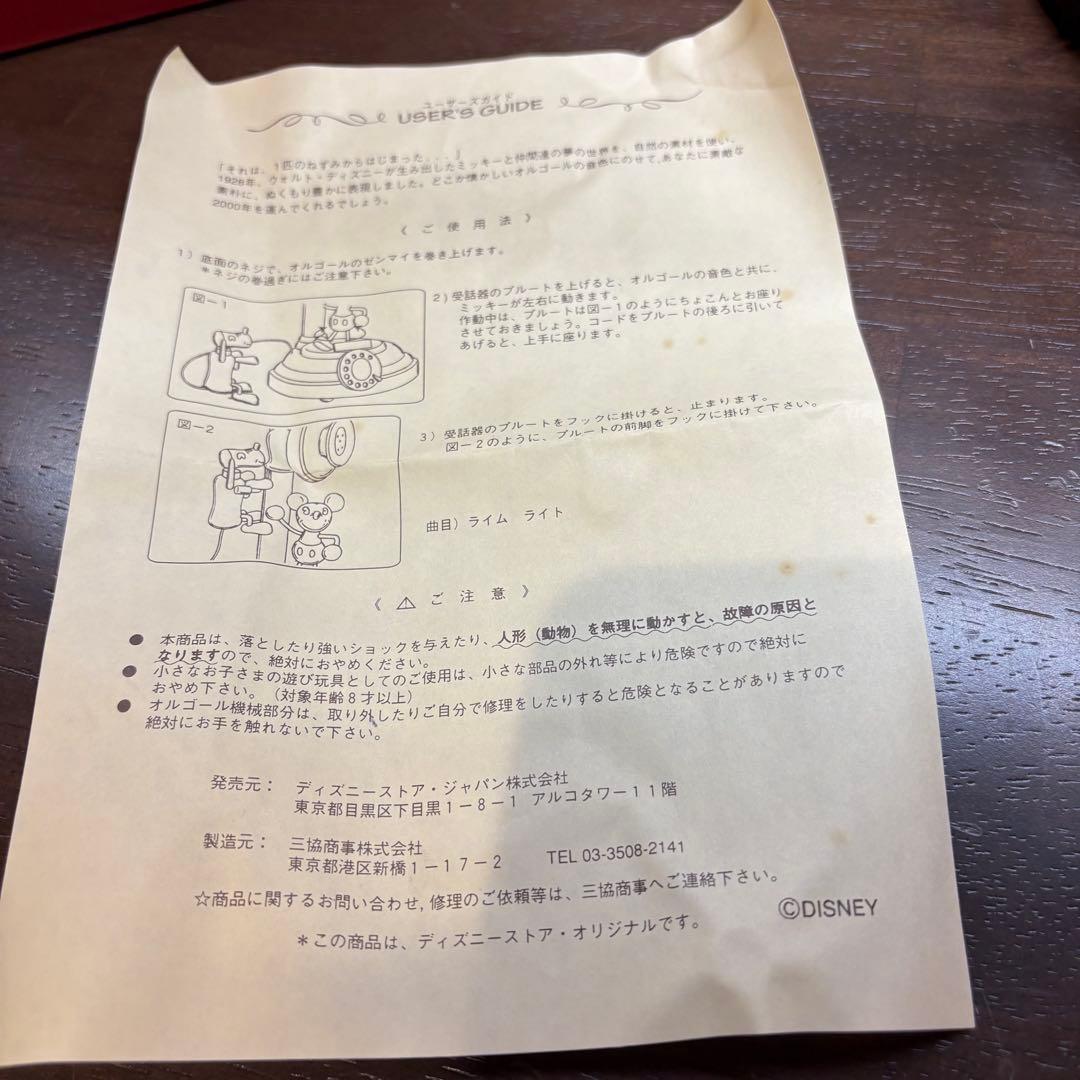 ユーザーズガイド
USER'S GUIDE
「それは、1匹のねずみからはじまった...」
1928年、ウォルト・ディズニーが生み出したミッキーと仲間達の夢の世界を、自然の素材を使い、
素朴に、ぬくもり豊かに表現しました。どこか懐かしいオルゴールの音色にのせて,あなたに素敵な
2000年を運んでくれるでしょう。
《 ご 使 用 法 》
1）底面のネジで、オルゴールのゼンマイを巻き上げます。
＊ネジの巻過ぎにはご注意下さい。
図－1
2）受話器のプルートを上げると、オルゴールの音色と共に、
ミッキーが左右に動きます。
作動中は、プルートは図－1のようにちょこんとお座り
させておきましょう。コードをプルートの後ろに引いて
あげると、上手に座ります。
図－2
3）受話器のプルートをフックに掛けると、止まります。
図－2のように、プルートの前脚をフックに掛けて下さい。
曲目）ライム ライト
《 ⚠ ご 注 意 》
● 本商品は、落としたり強いショックを与えたり、人形（動物）を無理に動かすと、故障の原因と
なりますので、絶対におやめください。
● 小さなお子さまの遊び玩具としてのご使用は、小さな部品の外れ等により危険ですので絶対に
おやめ下さい。（対象年齢8才以上）
● オルゴール機械部分は、取り外したりご自分で修理をしたりすると危険となることがありますので
絶対にお手を触れないで下さい。
発売元： ディズニーストア・ジャパン株式会社
東京都目黒区下目黒1－8－1 アルコタワー11階
製造元： 三協商事株式会社
東京都港区新橋1－17－2 TEL 03-3508-2141
☆商品に関するお問い合わせ,修理のご依頼等は、三協商事へご連絡下さい。
©DISNEY
＊この商品は、ディズニーストア・オリジナルです。